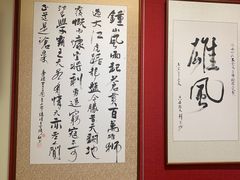 鐘山風雨起蒼黄百萬雄師
過大江虎踞龍盤今勝昔天翻地
覆慨而慷宜將剩勇追窮寇不可
沽名學霸王天若有情天亦老人間
正道是滄桑
雄風